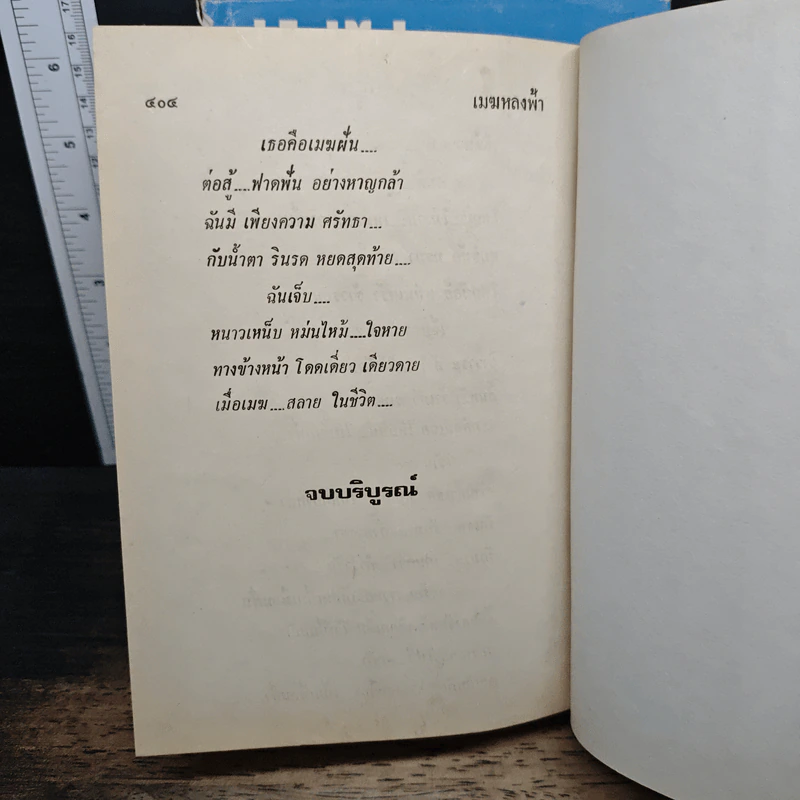 ๔๐๔ เมฆหลงฟ้า
เธอคือเมฆฝัน....
ต่อสู้....ฟาดฟัน อย่างหาญกล้า
ฉันมี เพียงความ ศรัทธา...
กับน้ำตา รินรด หยดสุดท้าย....
ฉันเจ็บ....
หนาวเหน็บ หม่นไหม้....ใจหาย
ทางข้างหน้า โดดเดี่ยว เดียวดาย
เมื่อเมฆ....สลาย ในชีวิต....
จบบริบูรณ์